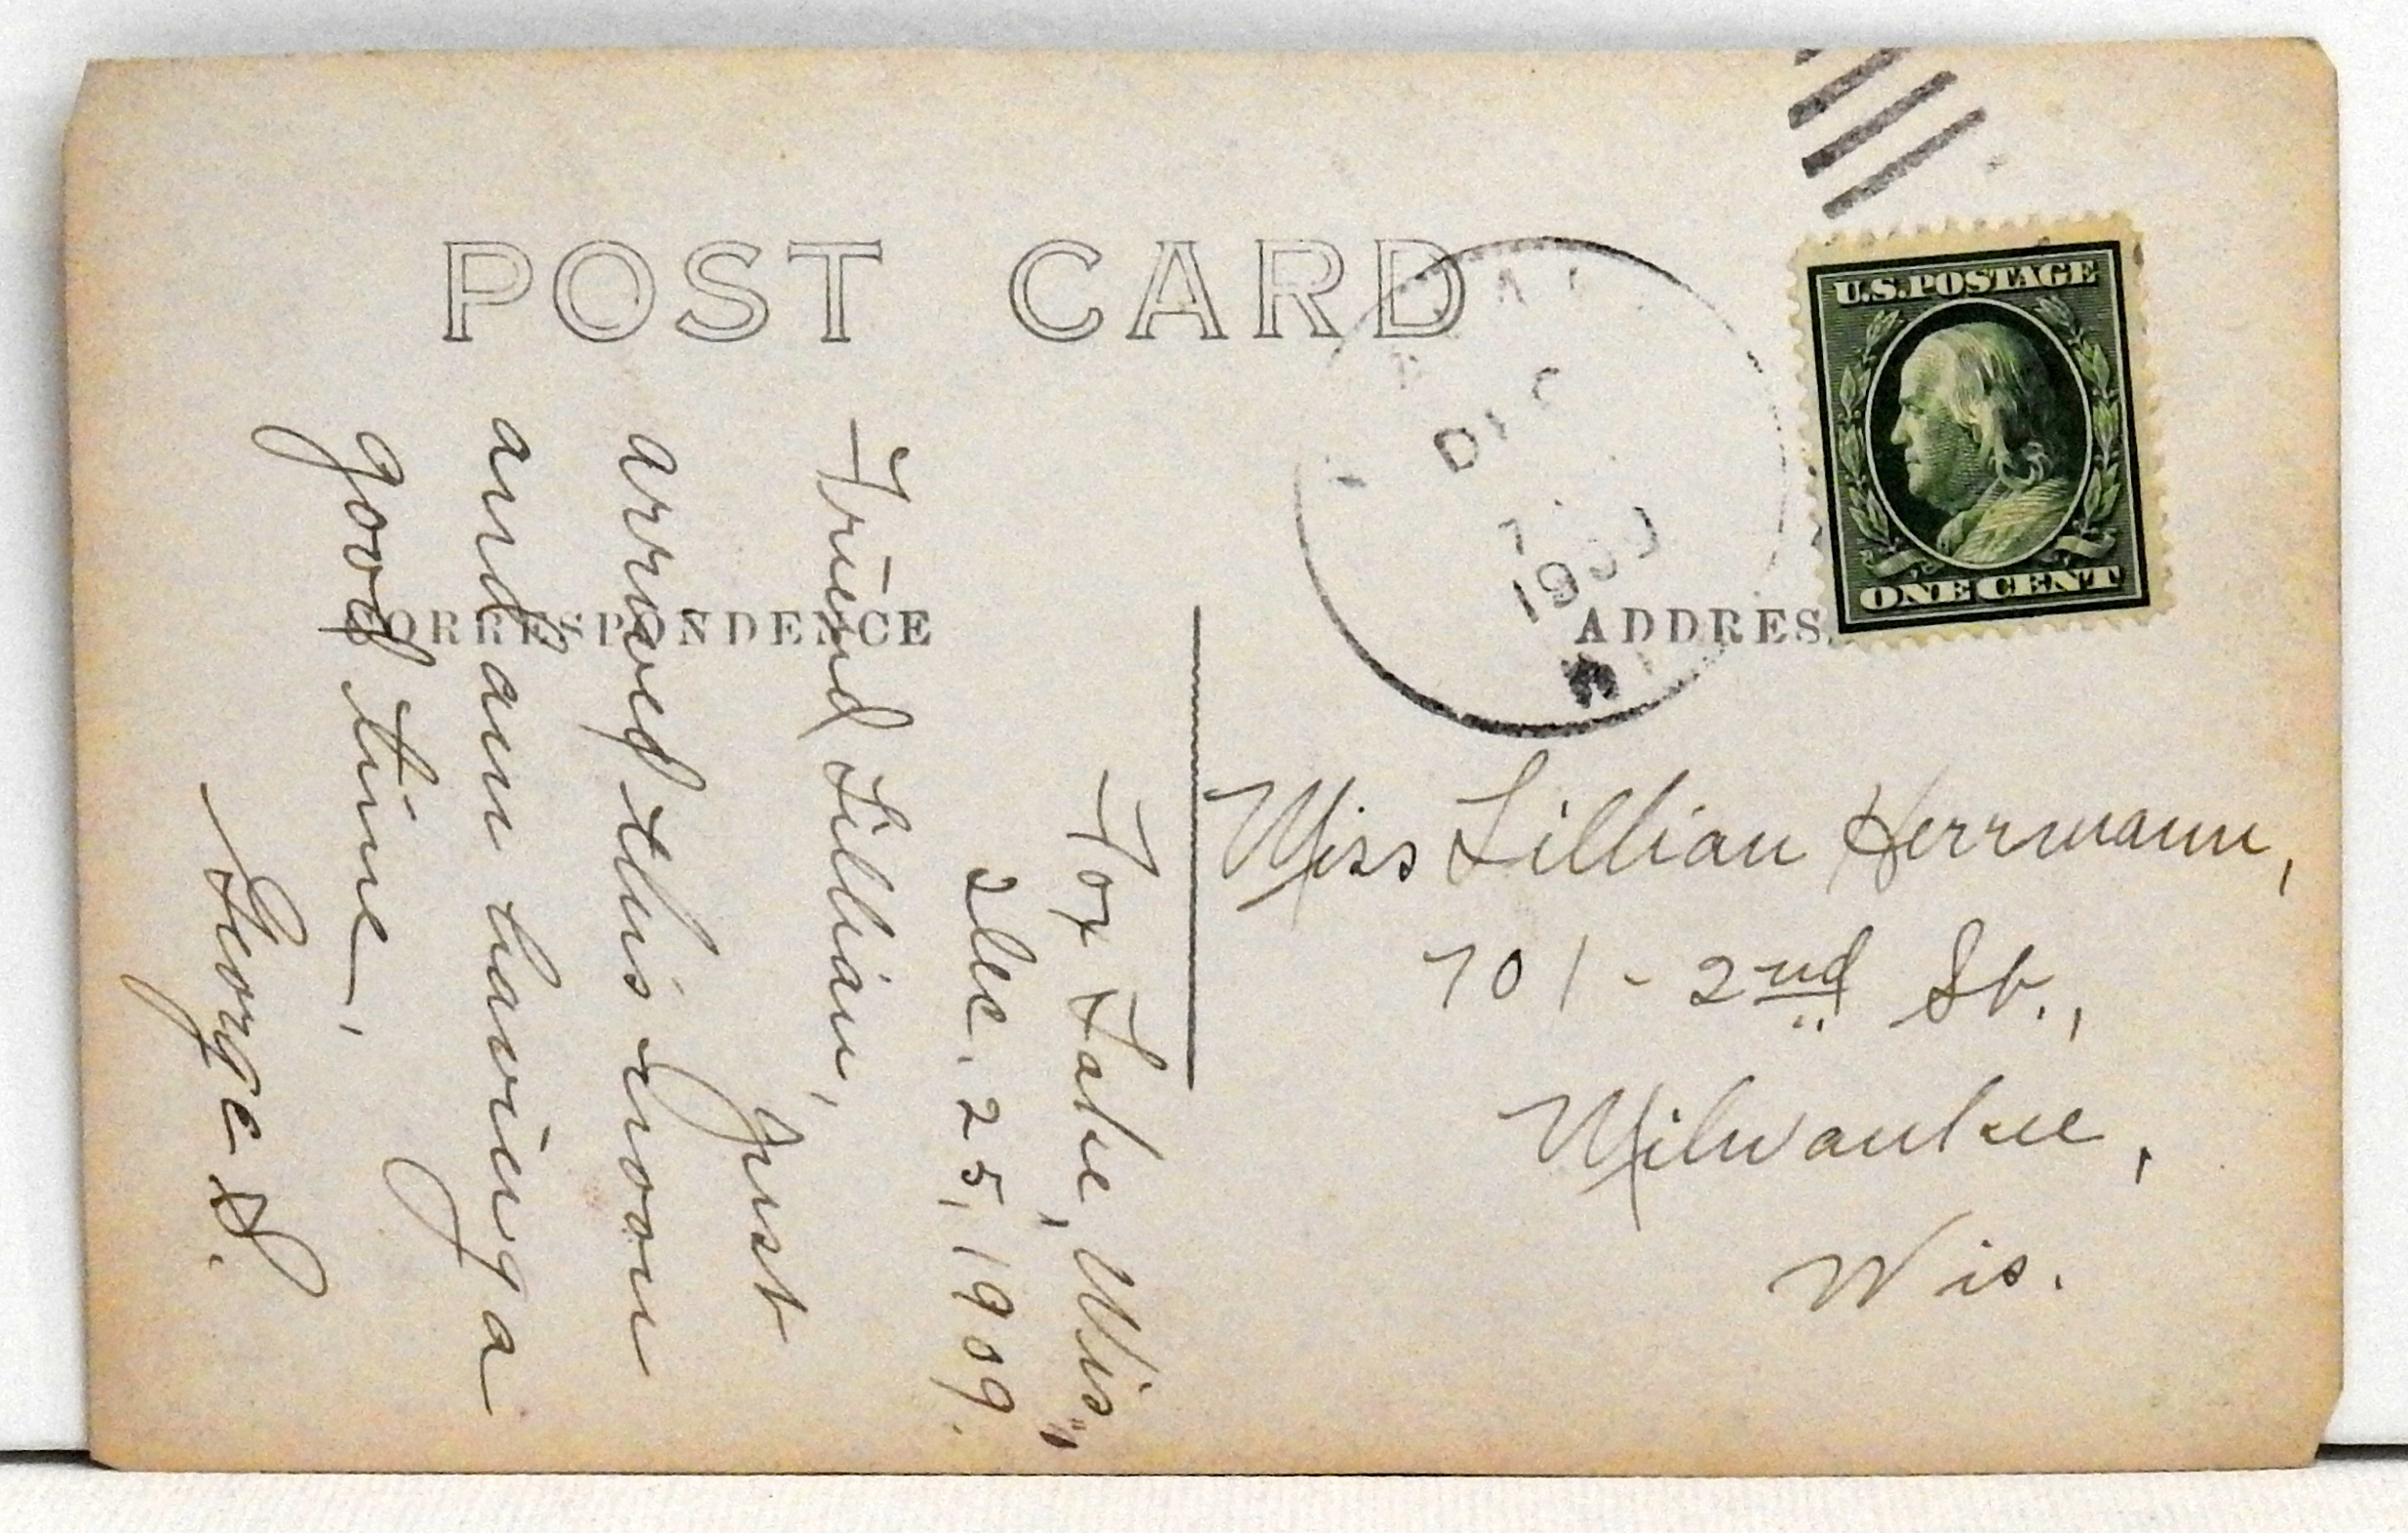 POST CARD
U.S.POSTAGE
ONE CENT
DEC
1909
CORRESPONDENCE
ADDRES
Fox Lake, Wis.,
Dec. 25, 1909.
Friend Lillian,
Just
arrived this noon
and am having a
good time,
George S.
Miss Lillian Herrmann,
701 - 2nd St.,
Milwaukee,
Wis.